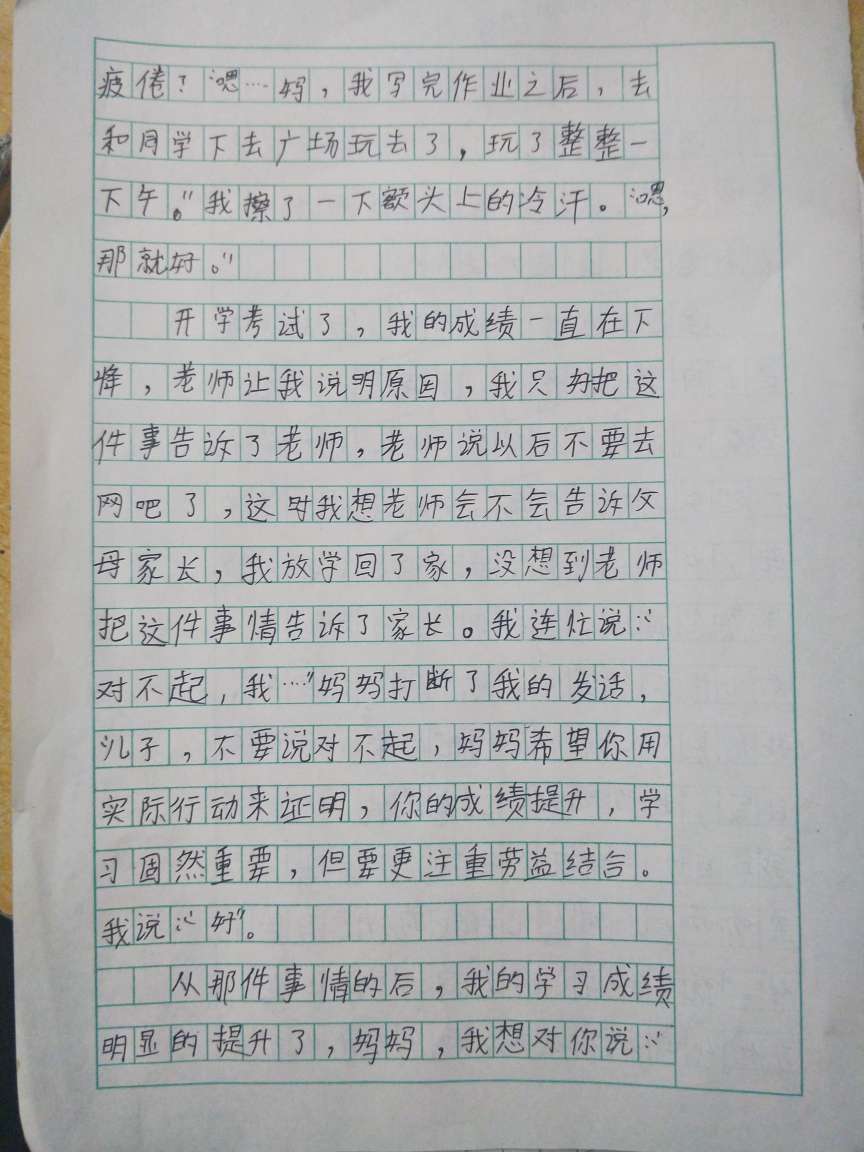 疲倦？“嗯……妈，我写完作业之后，去
和同学下去广场玩去了，玩了整整一
下午。”我擦了一下额头上的冷汗。“嗯，
那就好。”
开学考试了，我的成绩一直在下
降，老师让我说明原因，我只好把这
件事告诉了老师，老师说以后不要去
网吧了，这时我想老师会不会告诉父
母家长，我放学回了家，没想到老师
把这件事情告诉了家长。我连忙说：“
对不起，我……”妈妈打断了我的发话，
儿子，不要说对不起，妈妈希望你用
实际行动来证明，你的成绩提升，学
习固然重要，但要更注重劳益结合。
我说：“好”。
从那件事情的后，我的学习成绩
明显的提升了，妈妈，我想对你说：“